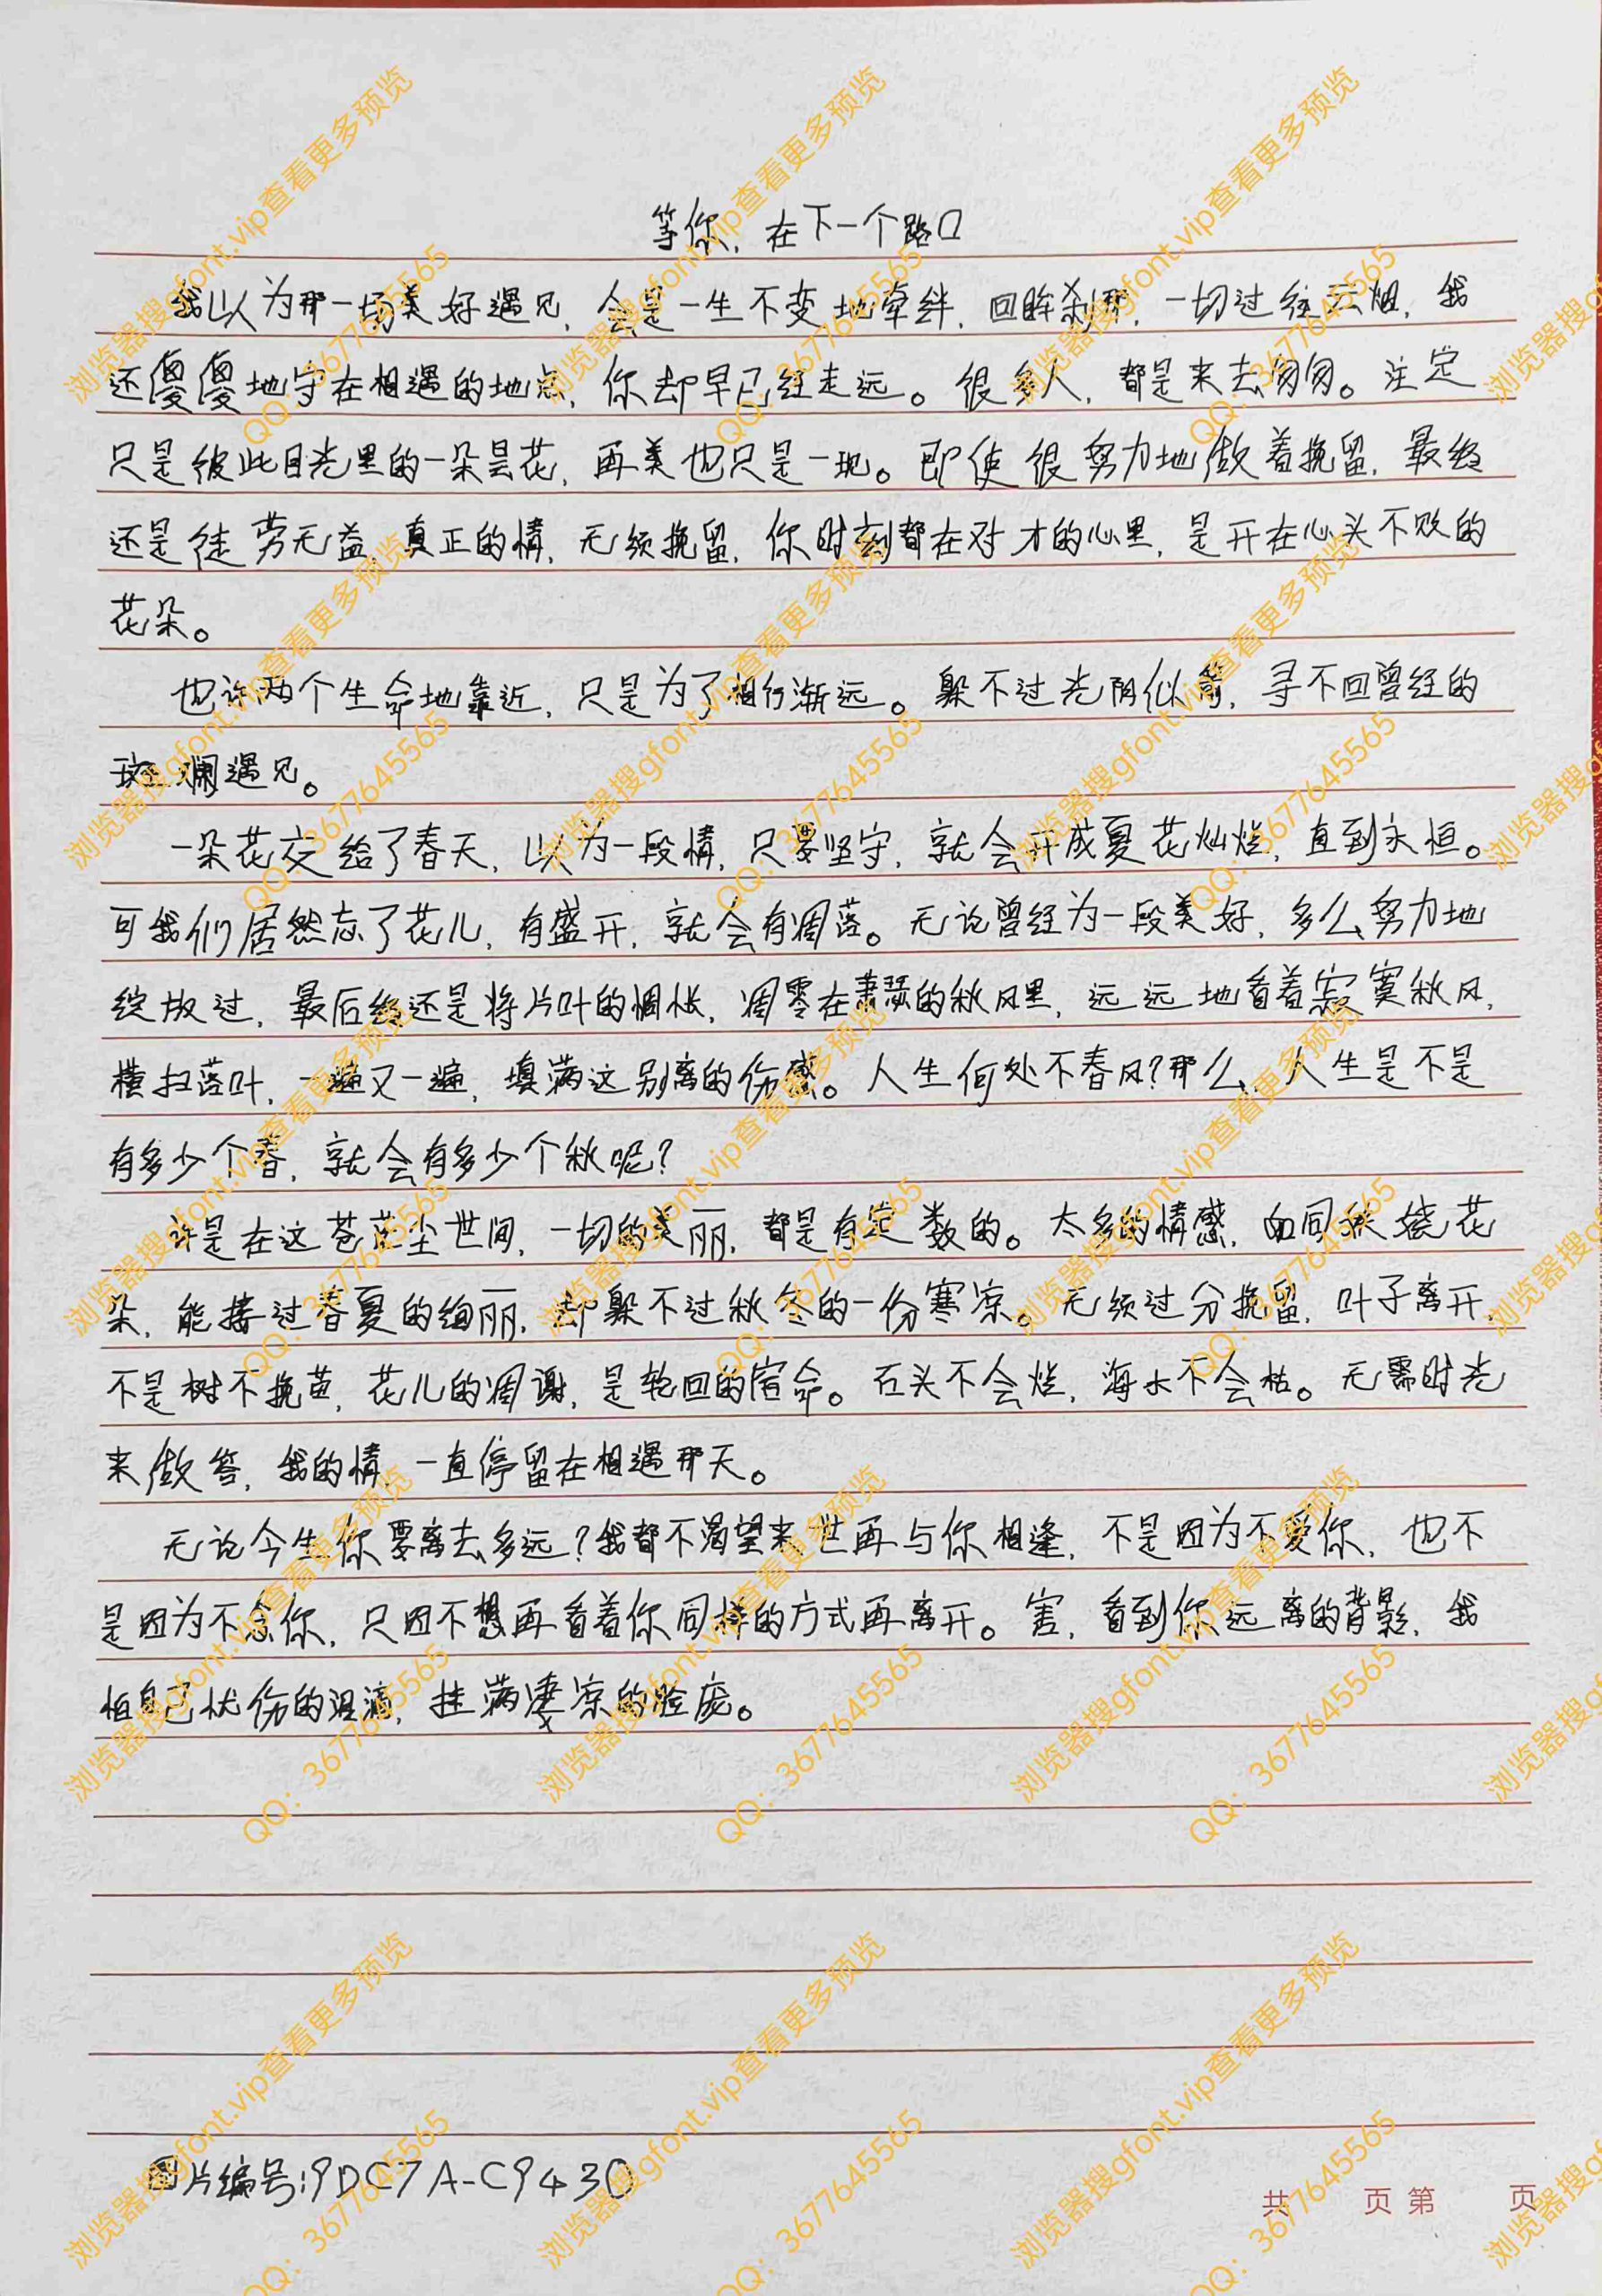 等你，在下一个路口
我以为那一场美好遇见，会是一生不变地牵绊，回眸刹那，一切过往云烟，我
还傻傻地守在相遇的地点，你却早已经走远。很多人，都是来去匆匆。注定
只是彼此目光里的一朵昙花，再美也只是一现。即使很努力地做着挽留，最终
还是徒劳无益，真正的情，无须挽留，你时刻都在对才的心里，是开在心头不败的
花朵。
也许两个生命地靠近，只是为了相行渐远。躲不过光阴似箭，寻不回曾经的
斑斓遇见。
一朵花交给了春天，以为一段情，只要坚守，就会开成夏花灿烂，直到永恒。
可我们居然忘了花儿，有盛开，就会有凋落。无论曾经为一段美好，多么努力地
绽放过，最后终还是将片叶的惆怅，凋零在萧瑟的秋风里，远远地看着寂寞秋风，
横扫落叶，一遍又一遍，填满这别离的伤感。人生何处不春风？那么，人生是不是
有多少个春，就会有多少个秋呢？
许是在这苍茫尘世间，一切的美丽，都是有定数的。太多的情感，如同妖娆花
朵，能接过春夏的绚丽，却躲不过秋冬的一份寒凉。无须过分挽留，叶子离开，
不是树不挽留，花儿的凋谢，是轮回的宿命。石头不会烂，海水不会枯。无需时光
来做答，我的情，一直停留在相遇那天。
无论今生你要离去多远？我都不渴望来世再与你相逢，不是因为不爱你，也不
是因为不念你，只因不想再看着你同样的方式再离开。害，看到你远离的背影，我
怕自己忧伤的泪滴，挂满凄凉的脸庞。
图片编号：9DC7A-C9430
共 页 第 页
浏览器搜gfont.vip查看更多预览
QQ：3677645565